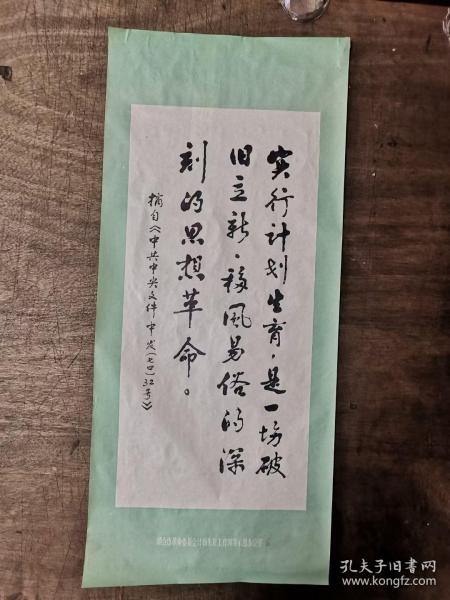 实行计划生育，是一场破
旧立新、移风易俗的深
刻的思想革命。
摘自《中共中央文件中发(七〇)32号》
孔夫子旧书网
www.kongfz.com